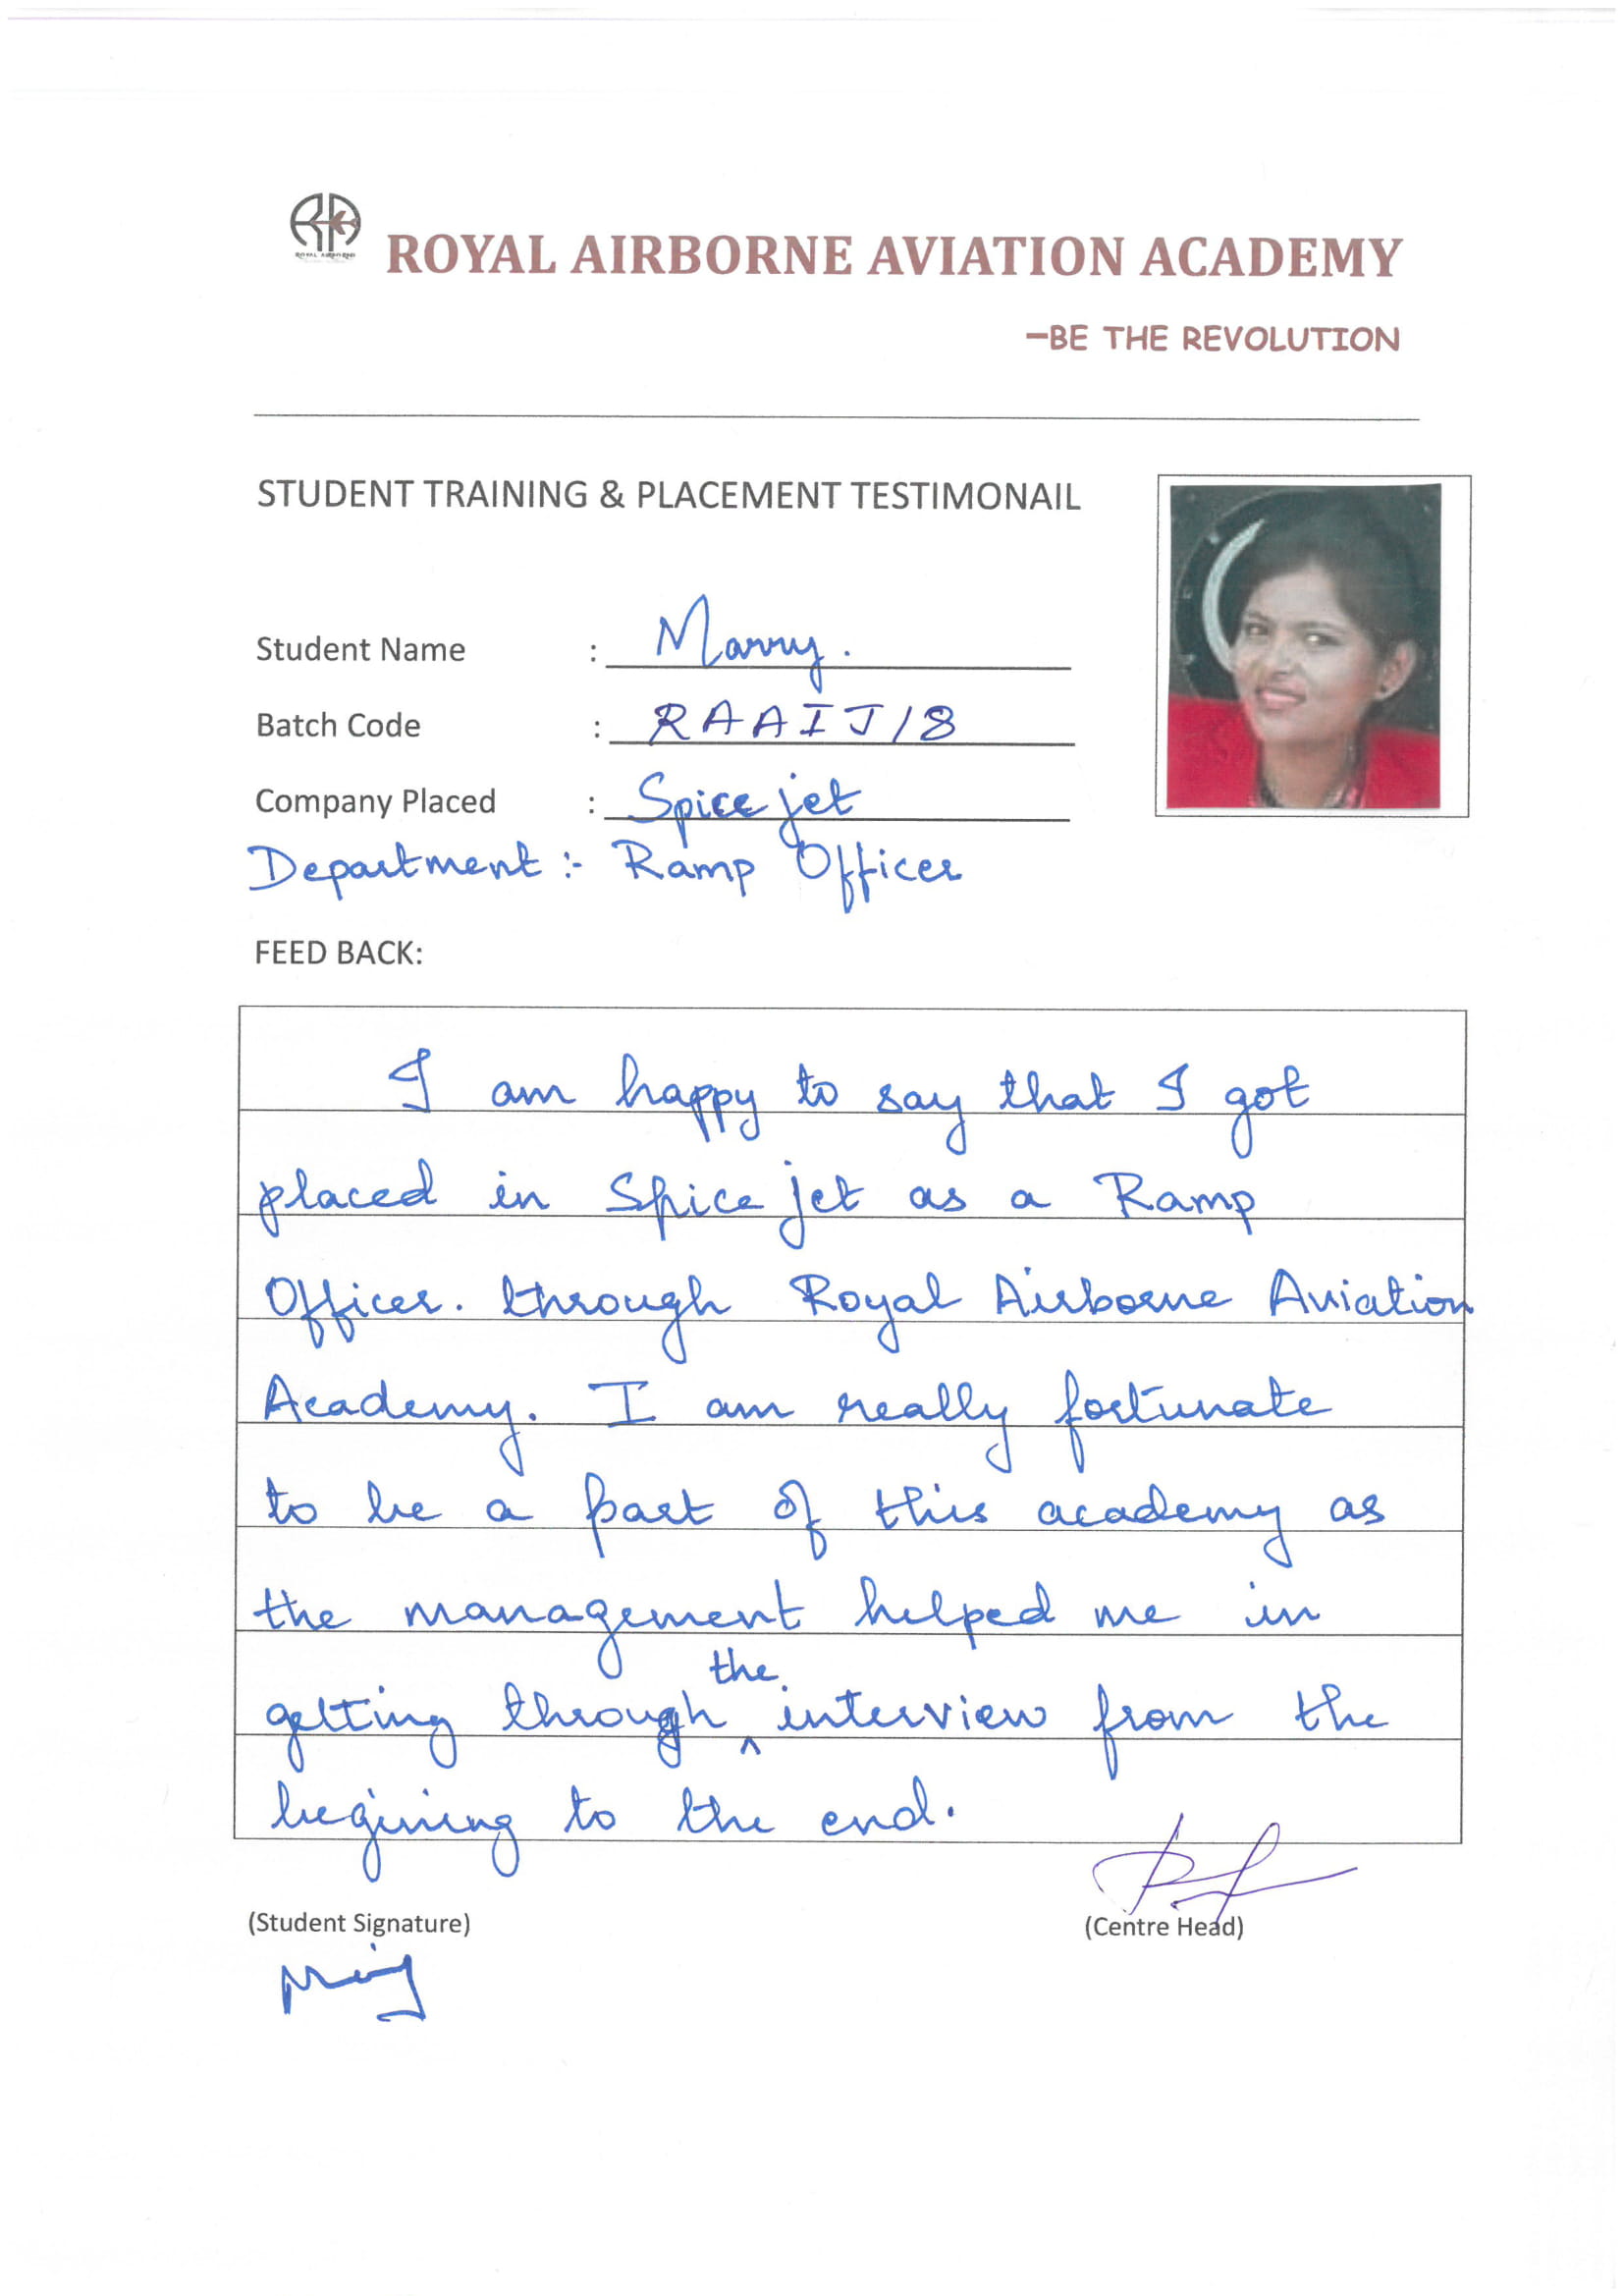 ROYAL AIRBORNE
ROYAL AIRBORNE AVIATION ACADEMY
–BE THE REVOLUTION
STUDENT TRAINING & PLACEMENT TESTIMONAIL
Student Name : Marry.
Batch Code : RAAIJ/8
Company Placed : Spice jet
Department :- Ramp Officer
FEED BACK:
I am happy to say that I got
placed in Spice jet as a Ramp
Officer. through Royal Airborne Aviation
Academy. I am really fortunate
to be a part of this academy as
the management helped me in
getting through the interview from the
begining to the end.
(Student Signature) (Centre Head)